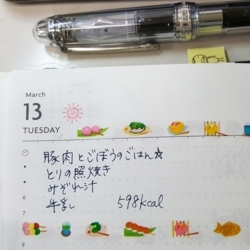 March
13
TUESDAY
豚肉とごぼうのごはん☆
とりの照焼き
みぞれ汁
牛乳 598kcal